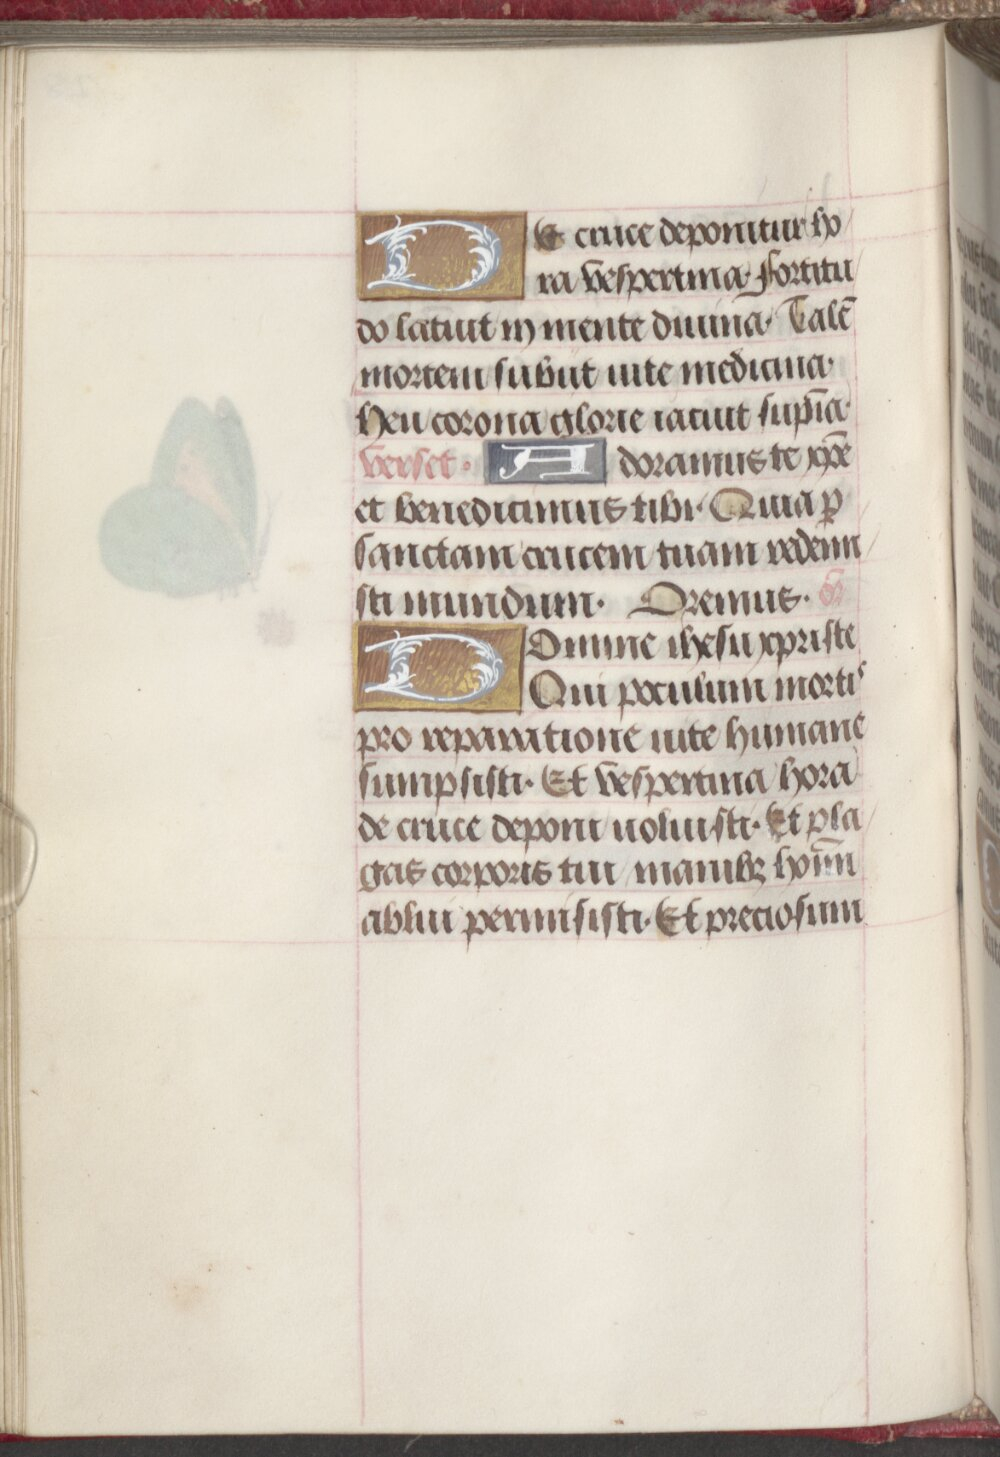 De cruce deponitur ho
ra vespertina. Fortitu
do latuit in mente diuina. Talē
mortem subiit uite medicina.
heu corona glorie iacuit supīa.
verset. Adoramus te xp̄e
et benedicimus tibi. Quia ꝑ
sanctam crucem tuam redemi
sti mundum. Oremus.
Domine ihesu xpriste
Qui poculum mortis
pro reparatione uite humane
sumpsisti. Et vespertina hora
de cruce deponi uoluisti. Et pla
gas corporis tui manibꝫ hoīm
ablui permisisti. Et preciosum